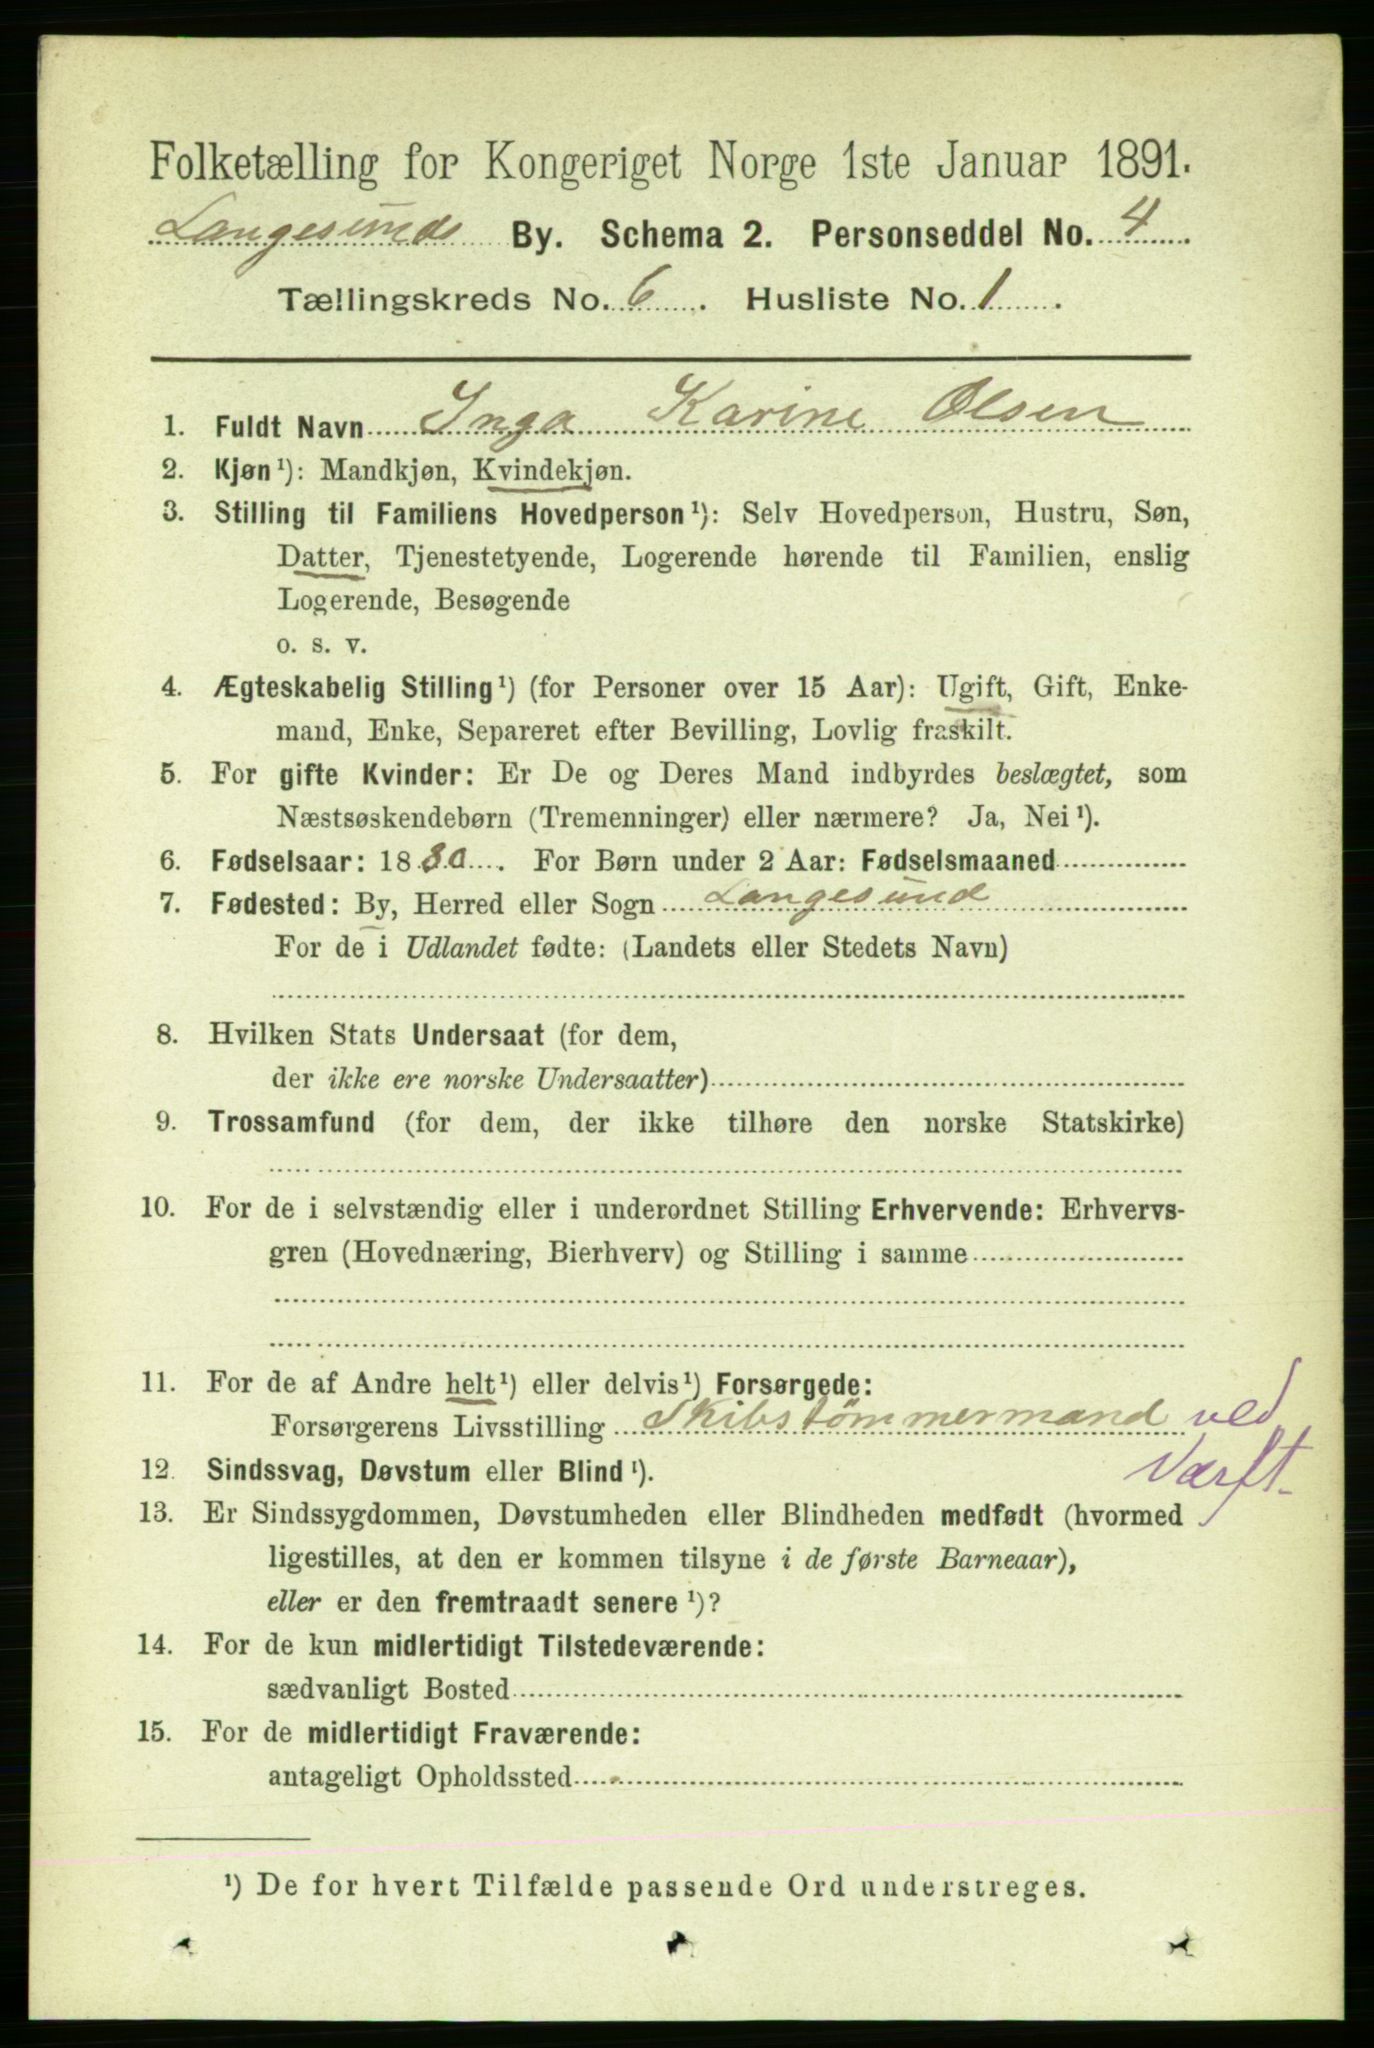 Folketælling for Kongeriget Norge 1ste Januar 1891.
Langesunds By. Schema 2. Personseddel No. 4
Tællingskreds No. 6. Husliste No. 1.
1. Fuldt Navn Inga Karine Olsen
2. Kjøn¹): Mandkjøn, Kvindekjøn.
3. Stilling til Familiens Hovedperson¹): Selv Hovedperson, Hustru, Søn,
Datter, Tjenestetyende, Logerende hørende til Familien, enslig
Logerende, Besøgende
o. s. v.
4. Ægteskabelig Stilling¹) (for Personer over 15 Aar): Ugift, Gift, Enke-
mand, Enke, Separeret efter Bevilling, Lovlig fraskilt.
5. For gifte Kvinder: Er De og Deres Mand indbyrdes beslægtet, som
Næstsøskendebørn (Tremenninger) eller nærmere? Ja, Nei¹).
6. Fødselsaar: 1880. For Børn under 2 Aar: Fødselsmaaned
7. Fødested: By, Herred eller Sogn Langesund
For de i Udlandet fødte: (Landets eller Stedets Navn)
8. Hvilken Stats Undersaat (for dem,
der ikke ere norske Undersaatter)
9. Trossamfund (for dem, der ikke tilhøre den norske Statskirke)
10. For de i selvstændig eller i underordnet Stilling Erhvervende: Erhvervs-
gren (Hovednæring, Bierhverv) og Stilling i samme
11. For de af Andre helt¹) eller delvis¹) Forsørgede:
Forsørgerens Livsstilling Skibstømmermand ved
Værft
12. Sindssvag, Døvstum eller Blind¹).
13. Er Sindssygdommen, Døvstumheden eller Blindheden medfødt (hvormed
ligestilles, at den er kommen tilsyne i de første Barneaar),
eller er den fremtraadt senere¹)?
14. For de kun midlertidigt Tilstedeværende:
sædvanligt Bosted
15. For de midlertidigt Fraværende:
antageligt Opholdssted
¹) De for hvert Tilfælde passende Ord understreges.